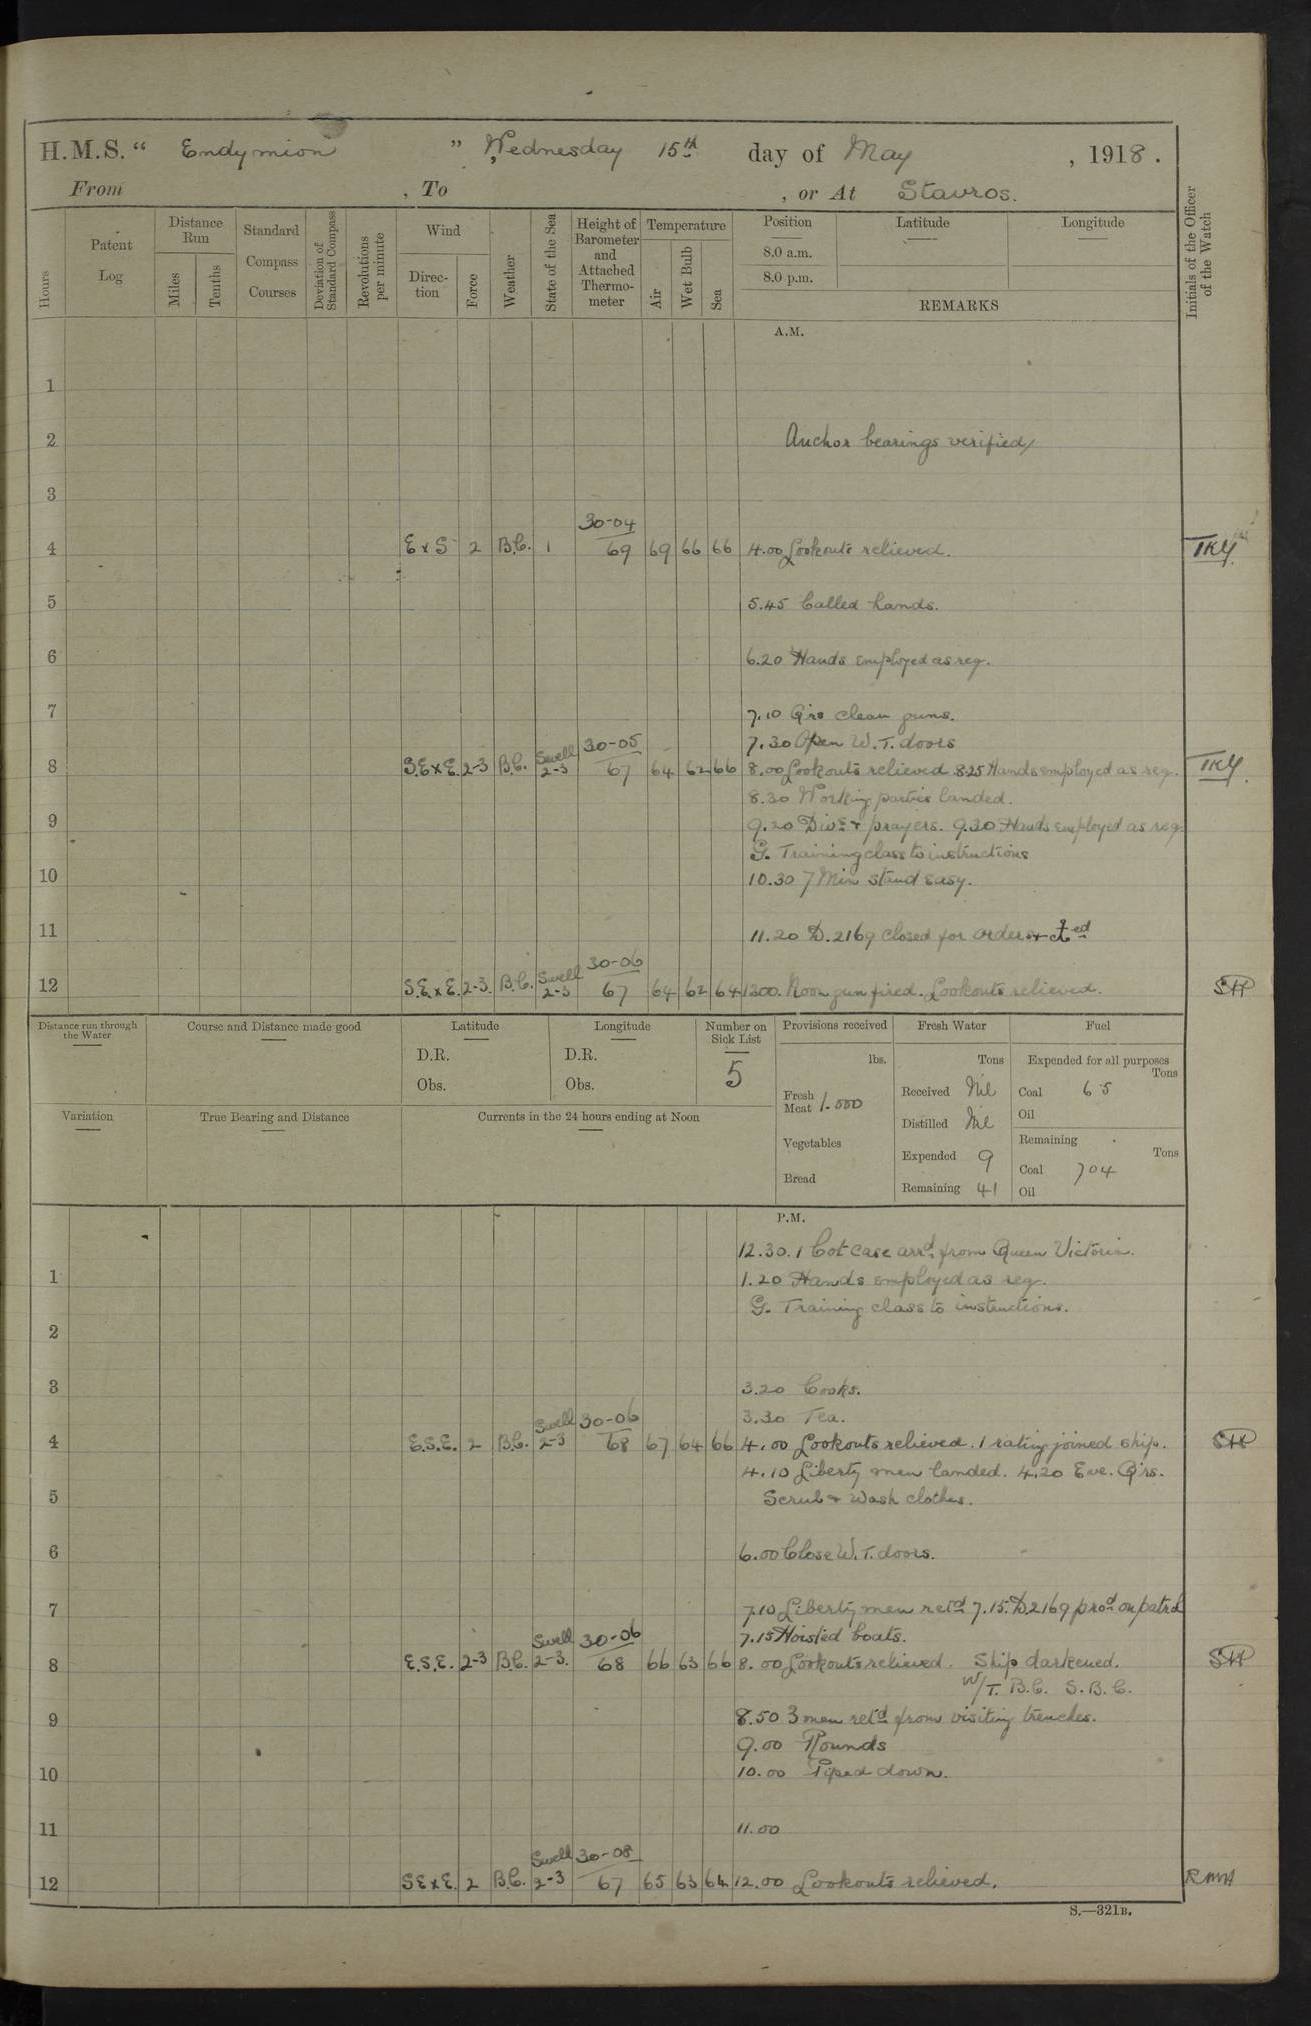 H.M.S. " Endymion " Wednesday 15th day of May , 1918.
From , To , or At Stavros.
Hours
Patent Log
Distance Run
Miles
Tenths
Standard Compass Courses
Deviation of Standard Compass
Revolutions per minute
Wind
Direction
Force
Weather
State of the Sea
Height of Barometer and Attached Thermometer
Temperature
Air
Wet Bulb
Sea
Position
8.0 a.m.
8.0 p.m.
Latitude
Longitude
REMARKS
Initials of the Officer of the Watch
A.M.
1
2 Anchor bearings verified
3
30-04
4 E x S 2 B.C. 1 69 69 66 66 4.00 Lookouts relieved. TKY
5 5.45 Called hands.
6 6.20 Hands employed as req.
7 7.10 Qrs clean guns.
Swell 30-05 7.30 Open W.T. doors
8 S.E x E. 2-3 B.C. 2-3 67 64 62 66 8.00 Lookouts relieved 8.25 Hands employed as req. TKY
8.30 Working parties landed.
9 9.20 Divs & prayers. 9.30 Hands employed as req.
G. Training class to instructions
10 10.30 7 Min stand easy.
11 11.20 D.2169 closed for orders &
Swell 30-06
12 S.E. x E. 2-3 B.C. 2-3 67 64 62 64 1200. Noon gun fired. Lookouts relieved.
Distance run through the Water
Course and Distance made good
Latitude
D.R.
Obs.
Longitude
D.R.
Obs.
Number on Sick List
5
Provisions received
lbs.
Fresh Meat 1.000
Vegetables
Bread
Fresh Water
Tons
Received Nil
Distilled Nil
Expended 9
Remaining 41
Fuel
Expended for all purposes
Tons
Coal 65
Oil
Remaining
Tons
Coal 704
Oil
Variation
True Bearing and Distance
Currents in the 24 hours ending at Noon
P.M.
12.30. 1 Cot case arrd from Queen Victoria.
1 1.20 Hands employed as req.
G. Training class to instructions.
2
3 3.20 Cooks.
Swell 30-06 3.30 Tea.
4 E.S.E. 2 B.C. 2-3 68 67 64 66 4.00 Lookouts relieved. 1 rating joined ship.
4.10 Liberty men landed. 4.20 Eve. Qrs.
5 Scrub & wash clothes.
6 6.00 Close W.T. doors.
7 7.10 Liberty men retd 7.15. D2169 procd on patrol
Swell 30-06 7.15 Hoisted boats.
8 E.S.E. 2-3 B.C. 2-3. 68 66 63 66 8.00 Lookouts relieved. Ship darkened.
W/T. B.C. S.B.C.
9 8.50 3 men retd from visiting trenches.
9.00 Rounds
10 10.00 Piped down.
11 11.00
Swell 30-08
12 SE x E. 2 B.C. 2-3 67 65 63 64 12.00 Lookouts relieved.
S.—321B.